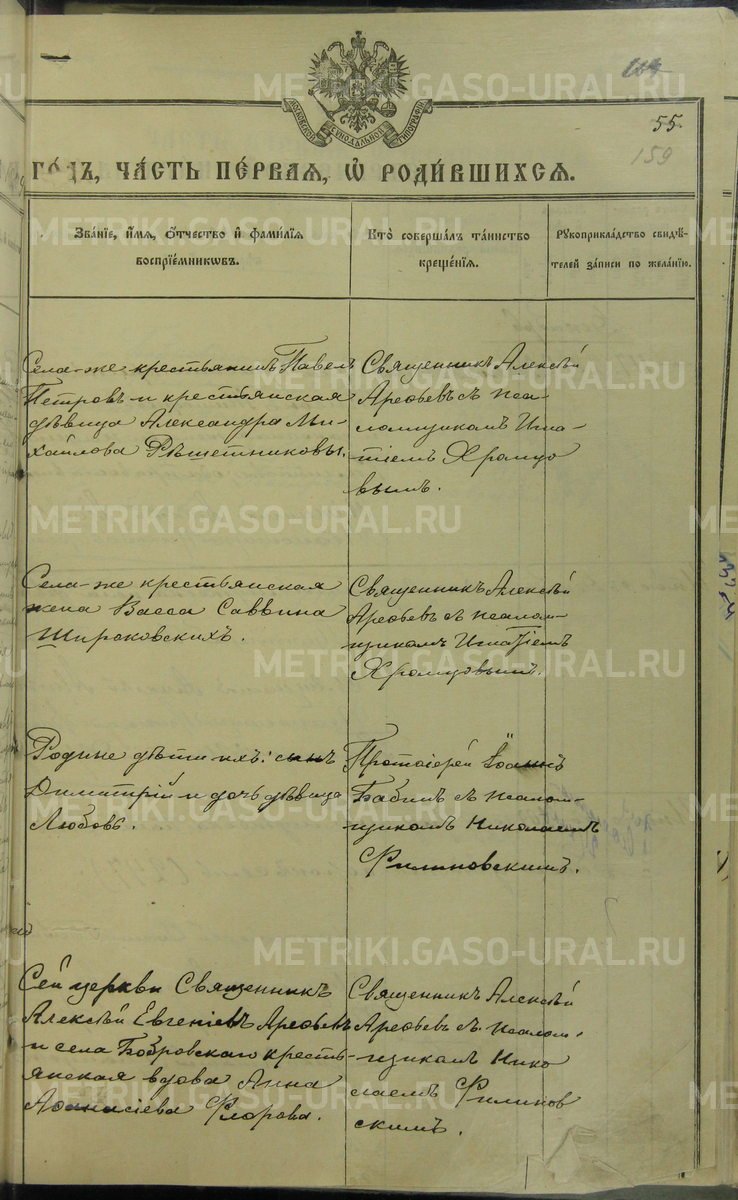 МОСКОВСКОЙ СѴНОДАЛЬНОЙ ТИПОГРАФІИ
55
159
ГО́ДЪ, ЧА́СТЬ ПЕ́РВАЯ, Ѡ РОДИ́ВШИХСЯ.
ЗВА́НІЕ, И́МЯ, О́ТЧЕСТВО И ФАМИ́ЛІЯ
ВОСПРІЕ́МНИКѠВЪ.
КТО̀ СОВЕРША́ЛЪ ТА́ИНСТВО
КРЕЩЕ́НІЯ.
РУКОПРИКЛА́ДСТВО СВИДѢ́-
ТЕЛЕЙ ЗА́ПИСИ ПО ЖЕЛА́НІЮ.
Села-же крестьянинъ Павелъ
Петровъ и крестьянская
дѣвица Александра Ми-
хайлова Рѣшетниковы.
Священникъ Алексѣй
Арефьевъ съ псал-
ломщикомъ Игна-
тіемъ Храмцо
вымъ.
Села-же крестьянская
жена Васса Саввина
Широковскихъ.
Священникъ Алексѣй
Арефьевъ съ псалом-
щикомъ Игнатіемъ
Храмцовымъ.
Родные дѣти ихъ: сынъ
Димитрій и дочь дѣвица
Любовь.
Протоіерей Іоаннъ
Бабинъ съ псалом-
щикомъ Николаемъ
Филиновскимъ.
Сей церкви Священникъ
Алексѣй Евгеніевъ Арефьевъ
и села Бобровскаго кресть-
янская вдова Анна
Аѳанасіева Флорова.
Священникъ Алексѣй
Арефьевъ съ псалом-
щикомъ Нико
лаемъ Филинов
скимъ.
METRIKI.GASO-URAL.RU